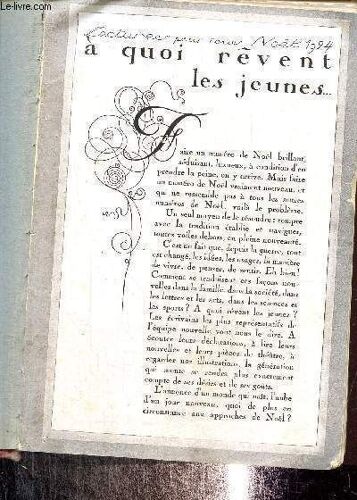 le-livre
Lectures pour tous Noël 1924
à quoi rêvent
les jeunes...
Faire un numéro de Noël brillant,
séduisant, luxueux, à condition d'en
prendre la peine, on y arrive. Mais faire
un numéro de Noël vraiment nouveau, et
qui ne ressemble pas à tous les autres
numéros de Noël, voilà le problème.
Un seul moyen de le résoudre : rompre
avec la tradition établie et naviguer,
toutes voiles dehors, en pleine nouveauté.
C'est un fait que, depuis la guerre, tout
est changé, les idées, les usages, la manière
de vivre, de penser, de sentir. Eh bien !
Comment se traduisent ces façons nou-
velles dans la famille, dans la société, dans
les lettres et les arts, dans les sciences et
les sports ? A quoi rêvent les jeunes ?
Les écrivains les plus représentatifs de
l'équipe nouvelle vont nous le dire. A
écouter leurs déclarations, à lire leurs
nouvelles et leurs pièces de théâtre, à
regarder nos illustrations, la génération
qui monte se rendra plus exactement
compte de ses désirs et de ses goûts.
L'annonce d'un monde qui naît, l'aube
d'un jour nouveau, quoi de plus en
circonstance aux approches de Noël ?